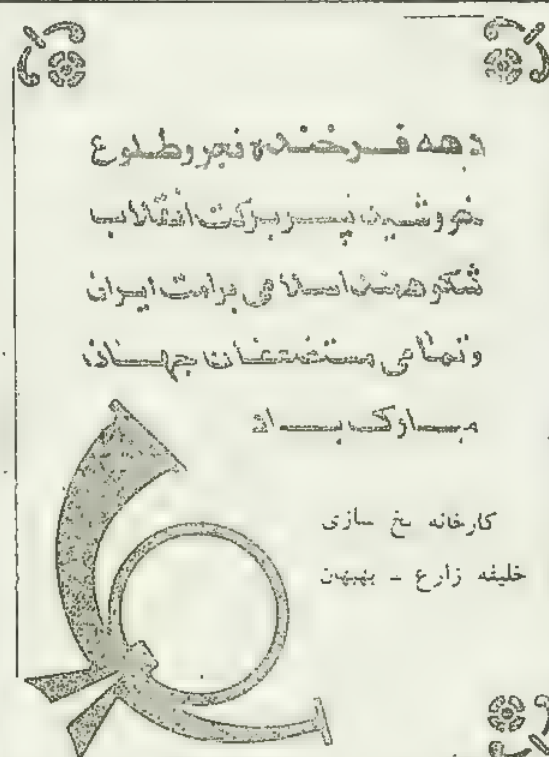 دهه فرخنده فجر و طلوع
خورشید پر برکت انقلاب
شکوهمند اسلامی بر امت ایران
و تمامی مستضعفان جهان
مبارک باد
کارخانه یخ سازی
خلیفه زارع - بهبهان